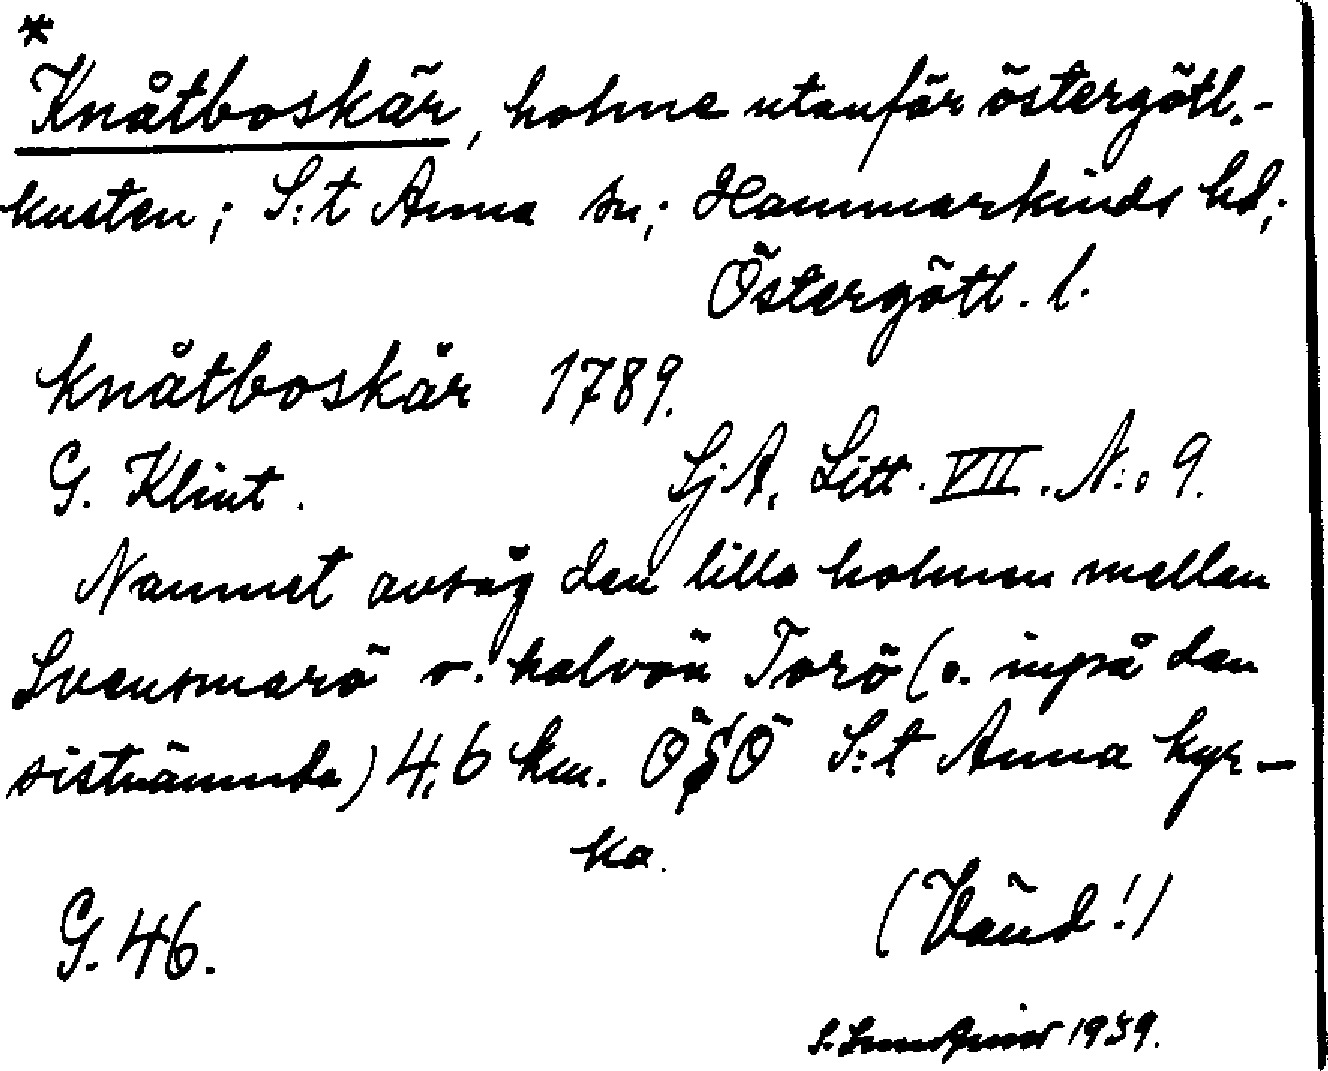 *
Knåtboskär, holme utanför östergötl.-
kusten; S:t Anna sn; Hammarkinds hd;
Östergötl. l.
Knåtboskär 1789.
G. Klint. SjA, Litt. VII. N:o 9.
Namnet avsåg den lilla holmen mellan
Svensmarö o. halvön Torö (o. inpå den
sistnämnda) 4,6 km. ÖSÖ S:t Anna kyr-
ka.
(Vänd!)
G. 46.
S. 1939.